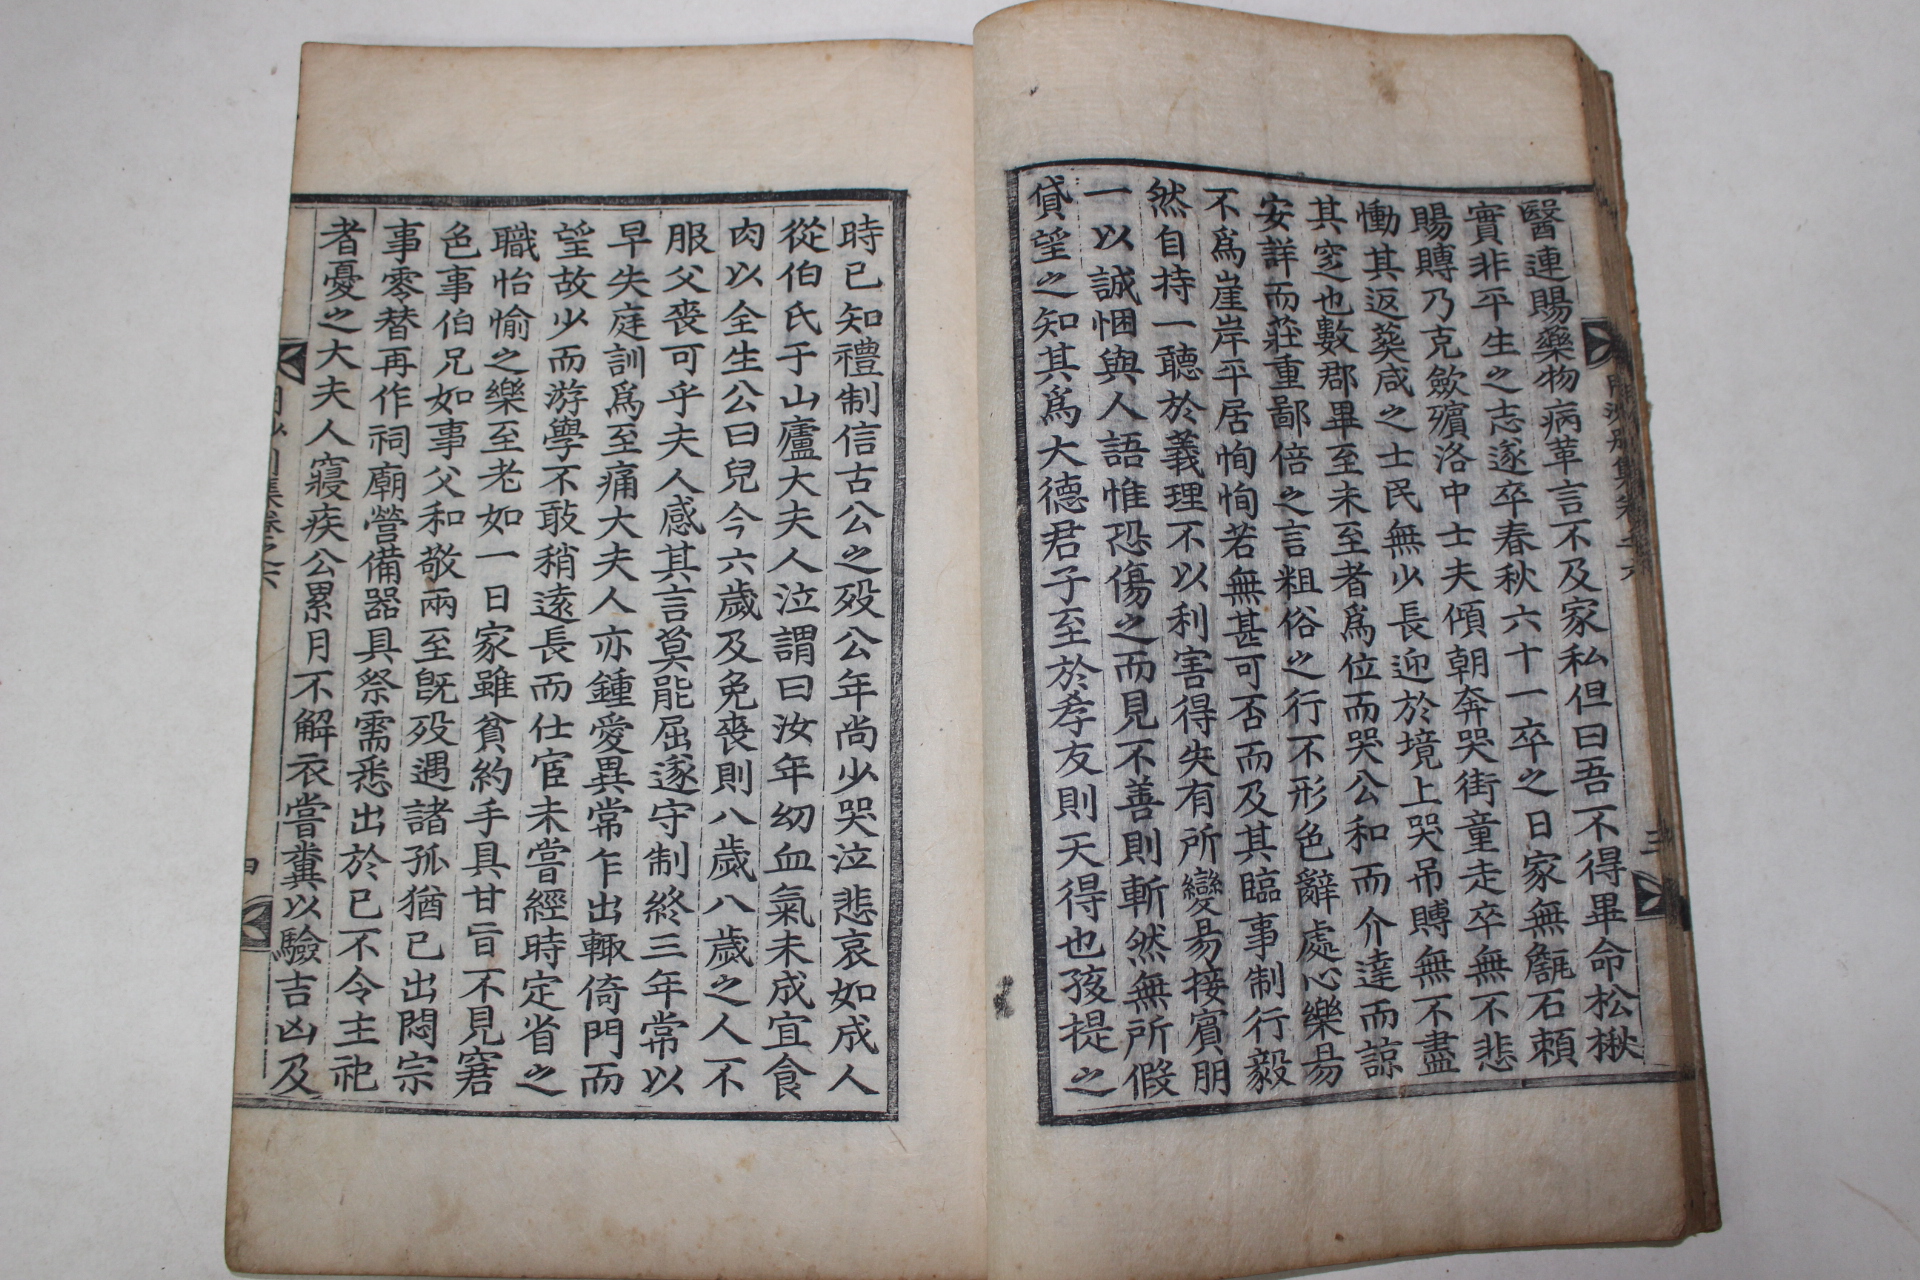 醫連賜藥物病革言不及家私但曰吾不得畢命松楸
實非平生之志遂卒春秋六十一卒之日家無甔石賴
賜賻乃克歛殯洛中士夫傾朝奔哭街童走卒無不悲
慟其返葬咸之士民無少長迎於境上哭吊賻無不盡
其窆也數郡畢至未至者爲位而哭公和而介達而諒
安詳而莊重鄙倍之言粗俗之行不形色辭處心樂昜
不爲崖岸平居恂恂若無甚可否而及其臨事制行毅
然自持一聽於義理不以利害得失有所變昜接賓朋
一以誠悃與人語惟恐傷之而見不善則斬然無所假
貸望之知其爲大德君子至於孝友則天得也孩提之
時已知禮制信古公之歿公年尚少哭泣悲哀如成人
從伯氏于山廬大夫人泣謂曰汝年幼血氣未成宜食
肉以全生公曰兒今六歲及免喪則八歲八歲之人不
服父喪可乎夫人感其言莫能屈遂守制終三年常以
早失庭訓爲至痛大夫人亦鍾愛異常乍出輒倚門而
望故少而游學不敢稍遠長而仕宦未嘗經時定省之
職怡愉之樂至老如一日家雖貧約手具甘旨不見窘
色事伯兄如事父和敬兩至旣歿遇諸孤猶己出悶宗
事零替再作祠廟營備器具祭需悉出於己不令主祀
者憂之大夫人寢疾公累月不解衣嘗糞以驗吉凶及
四